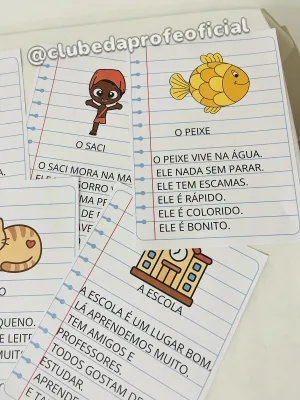 @clubedaprofeoficial
O SACI
O SACI MORA NA
O PEIXE
O PEIXE VIVE NA ÁGUA.
ELE NADA SEM PARAR.
ELE TEM ESCAMAS.
ELE É RÁPIDO.
ELE É COLORIDO.
ELE É BONITO.
A ESCOLA
A ESCOLA É UM LUGAR BOM.
LÁ APRENDEMOS MUITO.
TEM AMIGOS E
PROFESSORES.
TODOS GOSTAM DE
ESTUDAR.